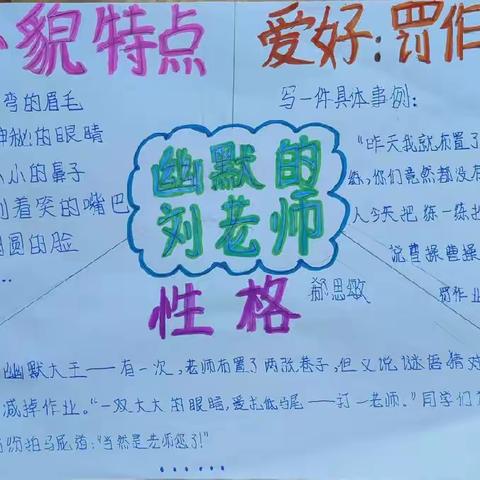 貌特点
爱好：罚作
弯的眉毛
神秘的眼睛
小小的鼻子
着笑的嘴巴
圆的脸
...
写一件具体事例：
“昨天我就布置了
练，你们竟然都没有
人今天把练一练
说曹操曹操
罚作业
幽默的
刘老师
郝思敏
性格
幽默大王——有一次，老师布置了两张卷子，但又说谜语，猜对
减掉作业。“一双大大的眼睛，爱扎低马尾——打一老师。”同学们
纷拍马屁道：“当然是老师您了！”
......